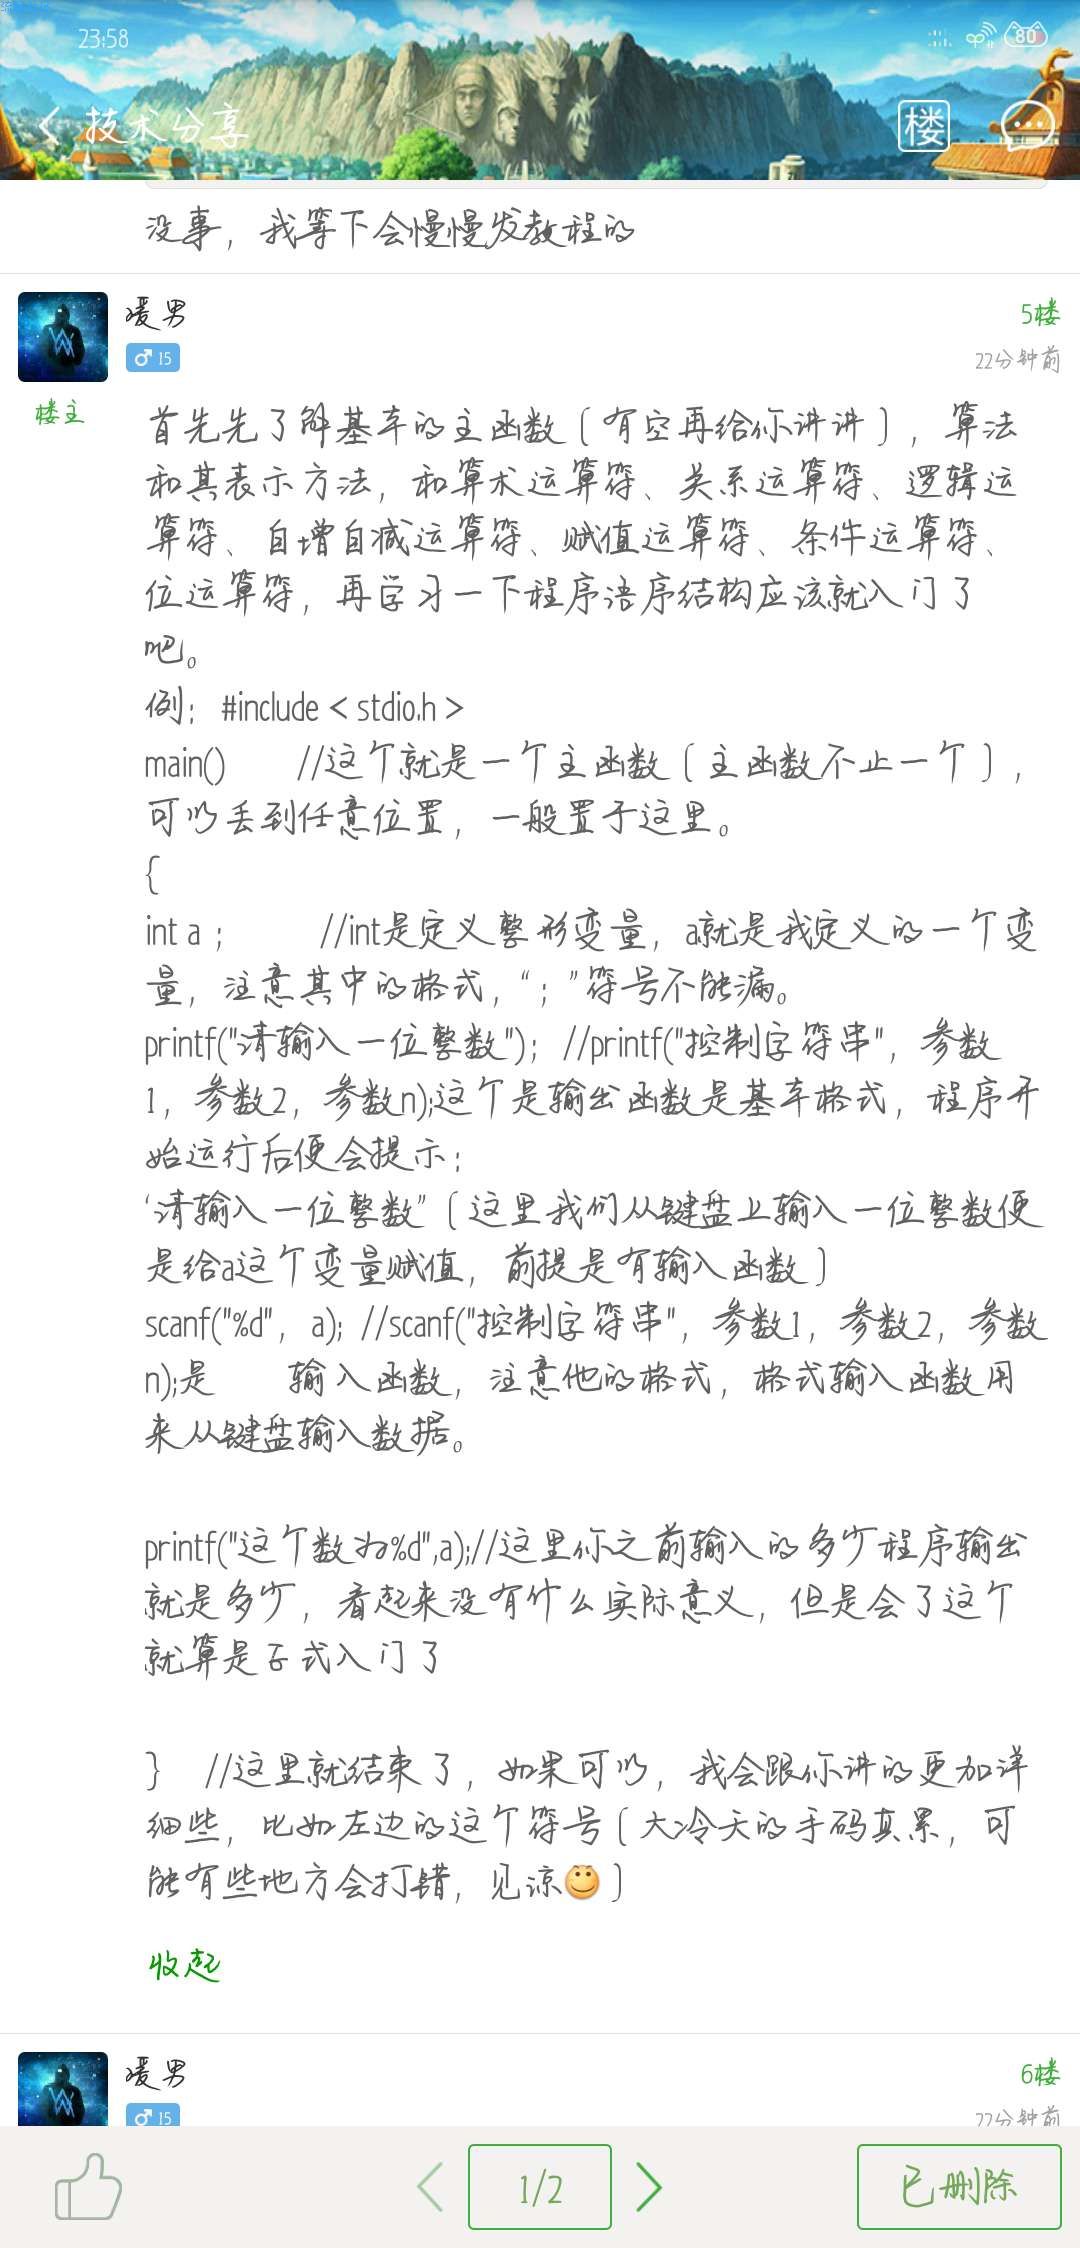 23:58
80
技术分享
楼
没事，我等下会慢慢发教程的
暖男
5楼
♂ 15
22分钟前
楼主
首先先了解基本的主函数（有空再给你讲讲），算法
和其表示方法，和算术运算符、关系运算符、逻辑运
算符、自增自减运算符、赋值运算符、条件运算符、
位运算符，再学习一下程序语序结构应该就入门了
吧。
例；#include < stdio.h >
main()　　//这个就是一个主函数（主函数不止一个），
可以丢到任意位置，一般置于这里。
{
int a ；　　　//int是定义整形变量，a就是我定义的一个变
量，注意其中的格式，“；”符号不能漏。
printf("请输入一位整数")；//printf("控制字符串"，参数
1，参数2，参数n);这个是输出函数是基本格式，程序开
始运行后便会提示；
‘请输入一位整数”（这里我们从键盘上输入一位整数便
是给a这个变量赋值，前提是有输入函数）
scanf("%d"，a); //scanf("控制字符串"，参数1，参数2，参数
n);是　　输入函数，注意他的格式，格式输入函数用
来从键盘输入数据。
printf("这个数为%d",a);//这里你之前输入的多少程序输出
就是多少，看起来没有什么实际意义，但是会了这个
就算是正式入门了
}　//这里就结束了，如果可以，我会跟你讲的更加详
细些，比如左边的这个符号（大冷天的手码真累，可
能有些地方会打错，见谅）
收起
暖男
6楼
♂ 15
22分钟前
1/2
已删除